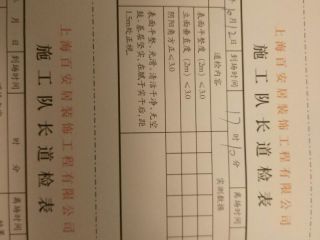 上海百安居装饰工程有限公司
施工队长道检表
月 日 到场时间 时 分 离场时间
上海百安居装饰工程有限公司
施工队长道检表
月12日 到场时间 17时10分 离场时间
道检内容 实测数据
表面平整度 (2m) ≤3.0
立面垂直度 (2m) ≤3.0
阴阳角方正 ≤3.0
表面平整、光滑、清洁干净、无空
鼓、基层坚实、在腻子实干后,距
1.5m处正视。